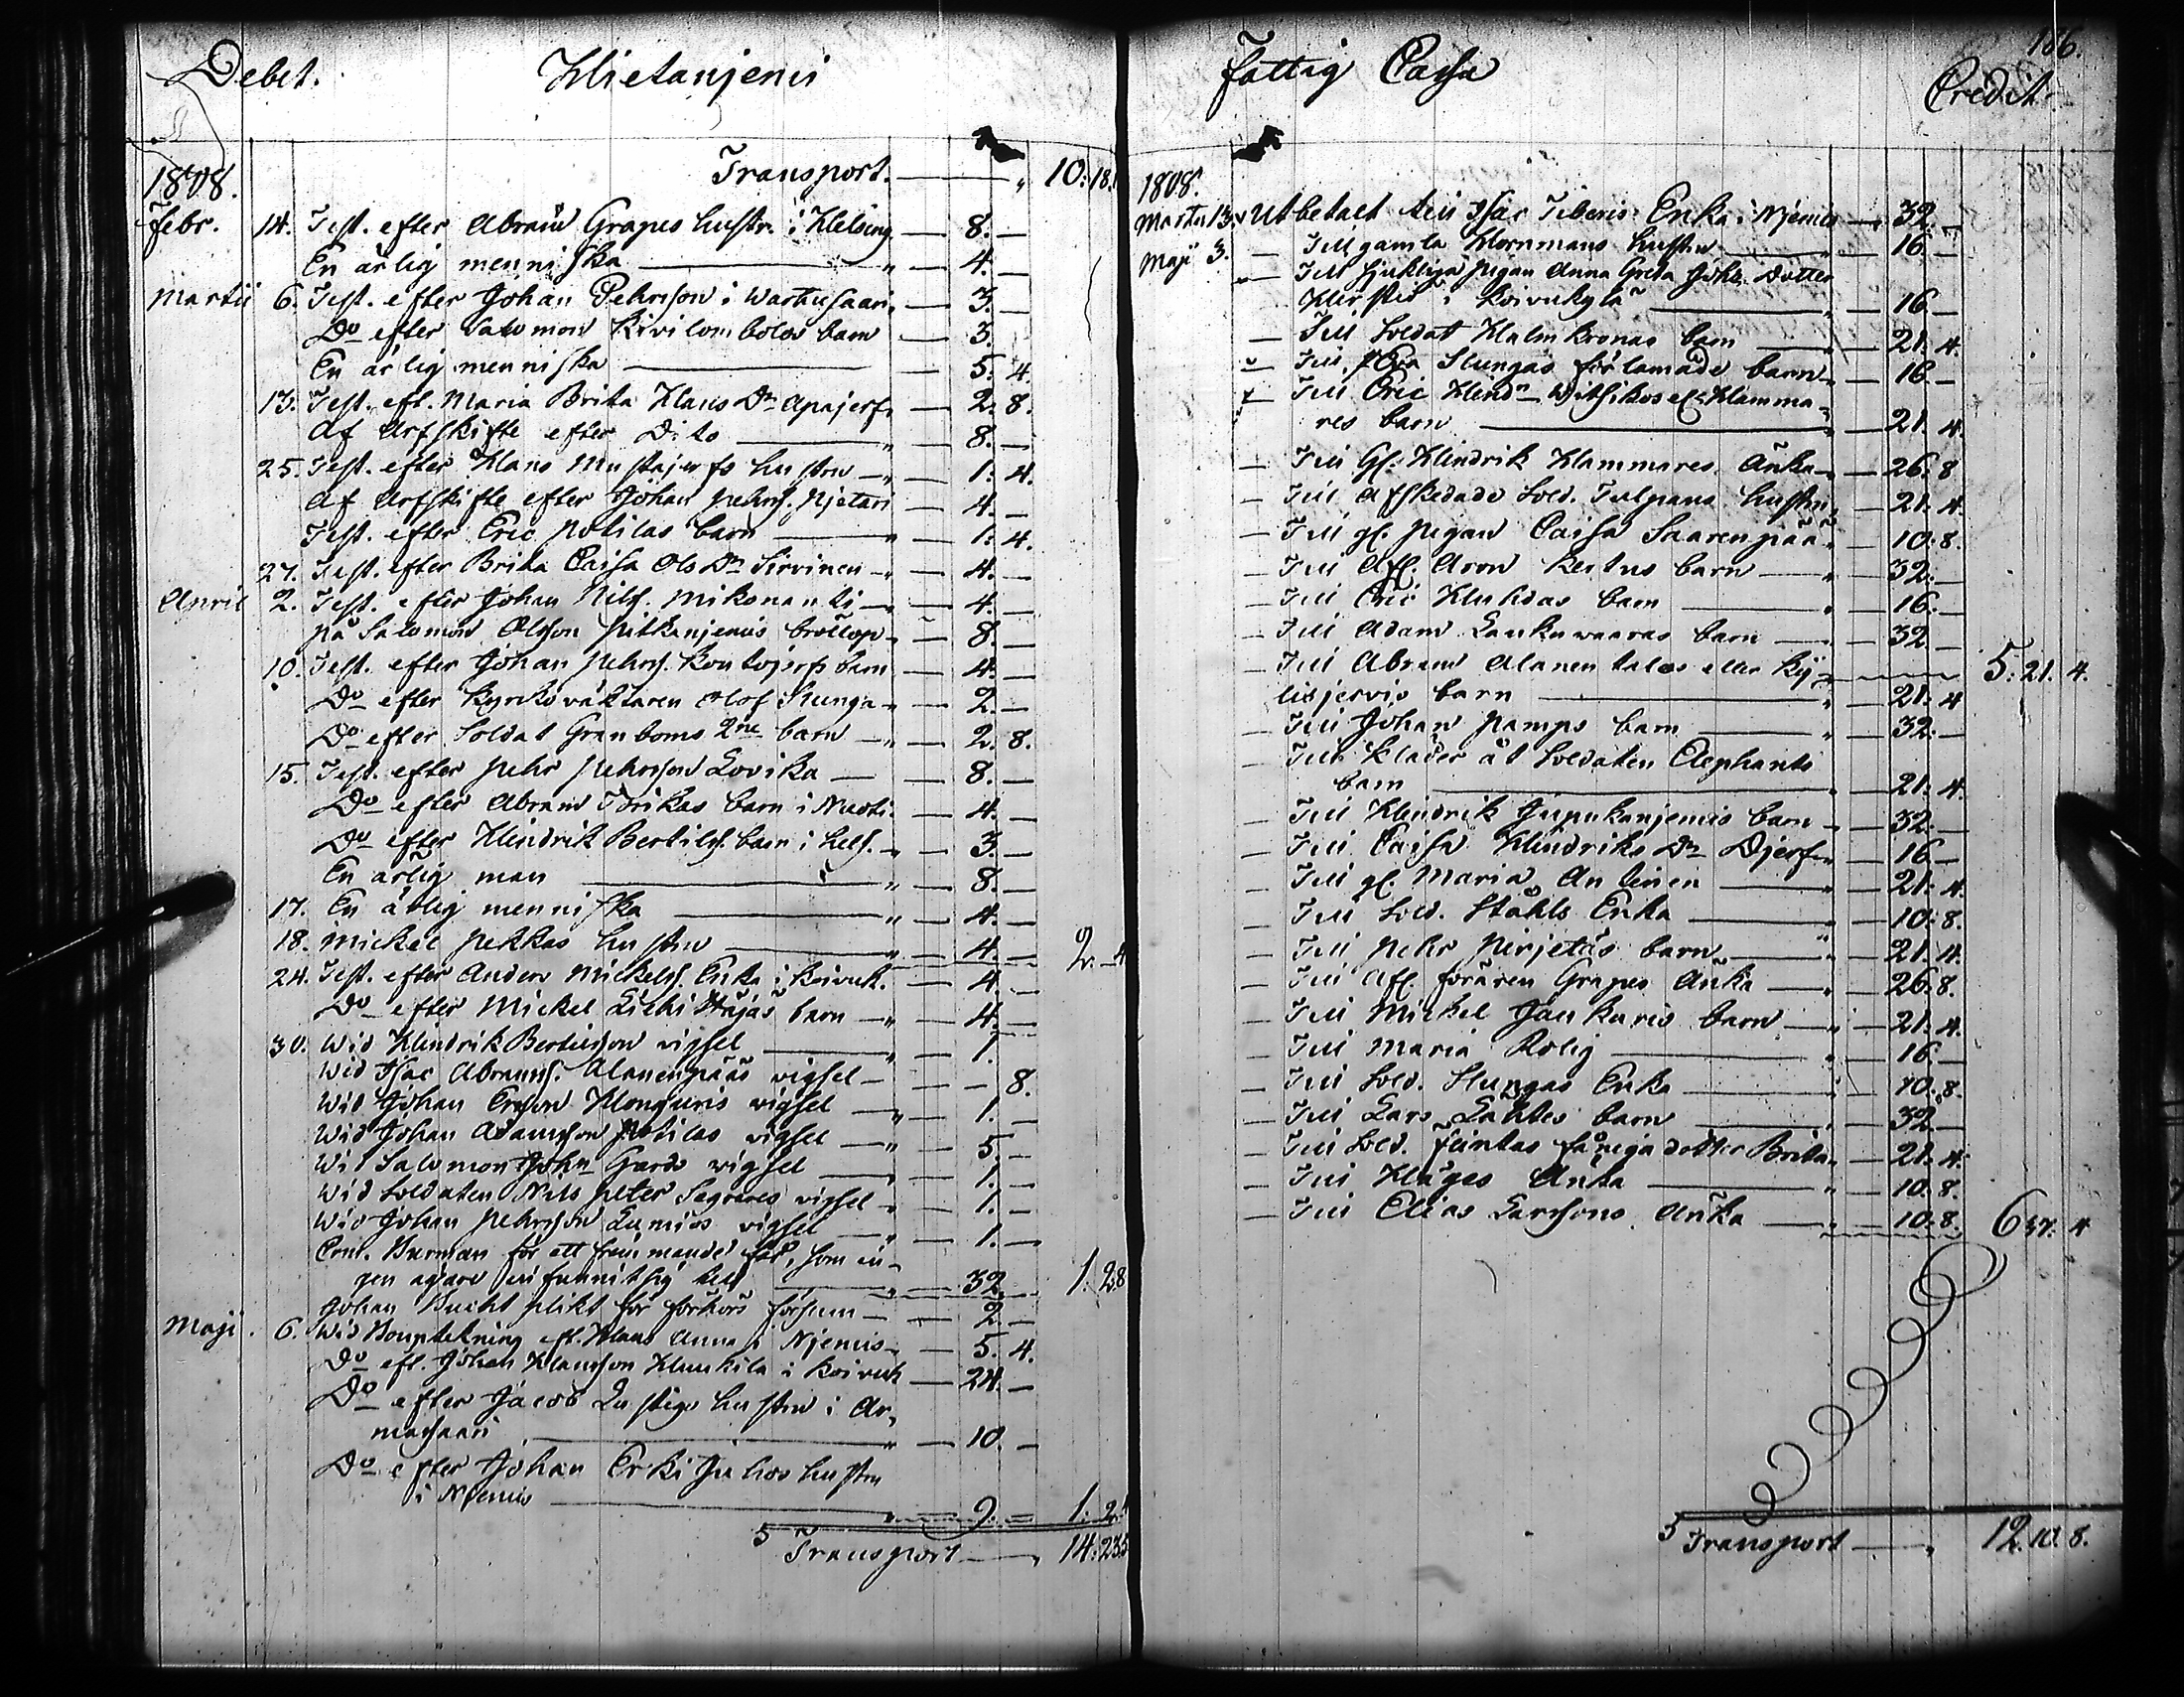 Debet. Hietaniemi
1808. Transport. 10: 18.
Febr. 14. Test. efter Abram Grapes hustr. i Helsing 8. —
En ärlig menniska 4. —
Martii 6. Test. efter Johan Pehrsson i Wartusaari 3. —
Do efter Salomon Kivilombolos barn 3.
En ärlig menniska 5. 4.
13. Test. eft. Maria Brita Hans Dr Apajerf 2. 8.
Af Arfskifte efter Dito 8. —
25. Test. efter Hans Mustajerfs hustru 1. 4.
Af Arfskifte efter Johan Pehrs. Njetari 4. —
Test. efter Eric Potilas barn 1. 4.
27. Test. efter Brita Caisa Ols Dr Sirvinen 4. —
April 2. Test. efter Johan Nils. Mikonanti 4. —
på Salomon Olsson Pitkeniemis bröllop 8. —
10. Test. efter Johan Pehrs. Kontojerfs barn 4. —
Do efter Kyrkoväktaren Olof Stunga 2. —
Do efter Soldat Granboms 2ne barn 2. 8.
15. Test. efter Pehr Pehrsson Lovika 8. —
Do efter Abram barn i 4. —
Do efter Hindrik Bertils. barn i Hels. 3. —
En ärlig man 8. —
17. En ärlig menniska 4. —
18. Mickel Pekkas hustru 4. — 2. — 4
24. Test. efter Anders Mickels. Enka i Koivuk. 4. —
Do efter Mickel barn 4. —
30. Wid Hindrik Bertilsson vigsel 1. —
Wid Isac Abrams. Alanenpääs vigsel — 8.
Wid Johan Ersson vigsel 1. —
Wid Johan Adamsson Potilas vigsel 5. —
Wid Salomon John Gards vigsel 1. —
Wid Soldaten Nils Peter vigsel 1. —
Wid Johan Pehrsson vigsel 1. —
Burman för ett främmande får, som in-
gen ägare 32. — 1. 28
Johan Bucht plikt för förhörs försum 2. —
Maji 6. Wid Boupptekning eft. Hans Anna i Njemis 5. 4.
Do eft. Johan Hansson i Koivuk 24. —
Do efter Jacob Lustigs hustru i Ar-
masaari 10. —
Do efter Johan Erki Juhos hustru
i Njemis 9. = 1. 2.
5 Transport 14: 23.
186.
Fattig Cassa Credit.
1808.
Martii 13. Utbetalt till Isac Tiberis Enka i Njemis 32. —
Maji 3. — Till gamla Hornmans hustru 16. —
— Till sjukliga pigan Anna Greta Johs. Dotter
i Koivukylä 16. —
— Till Soldat Malmkronas barn 21. 4.
— Till Stungas förlamade barn 16. —
— Till Eric Hends. el. Hamma-
res barn 21. 4.
— Till Gl. Hindrik Hammares Änka 26: 8
— Till Afskedade Sold. Tulpans hustru 21. 4.
— Till gl. pigan Caisa Saarenpää 10: 8.
— Till Afl. Aron Kertus barn 32: —
— Till Eric Huhdas barn 16: —
— Till Adam Lankuwaaras barn 32 —
— Till Abram Alanentalos eller Ky- 5: 21. 4.
lisjervis barn 21: 4
— Till Johan Pamps barn 32: —
— Till kläder åt Soldaten Elephants
barn 21. 4.
— Till Hindrik Jupukanjemis barn 32: —
— Till Caisa Hindriks Dr Djerf 16 —
— Till gl. Maria Antinen 21. 4.
— Till Sold. Ståhls Enka 10: 8.
— Till Pehr Pirjetäs barn 21. 4.
— Till Afl. förären Grapes Änka 26: 8.
— Till Mickel Jankuris barn 21. 4.
— Till Maria Rolig 16 —
— Till Sold. Stungas Enka 10. 8.
— Till Lars Lahtes barn 32 —
— Till Sold. Flintas fåniga dotter Brita 21. 4.
— Till Häges Änka 10. 8.
— Till Elias Larssons Änka 10. 8. 6 37. 4
5 Transport 12. 10. 8.